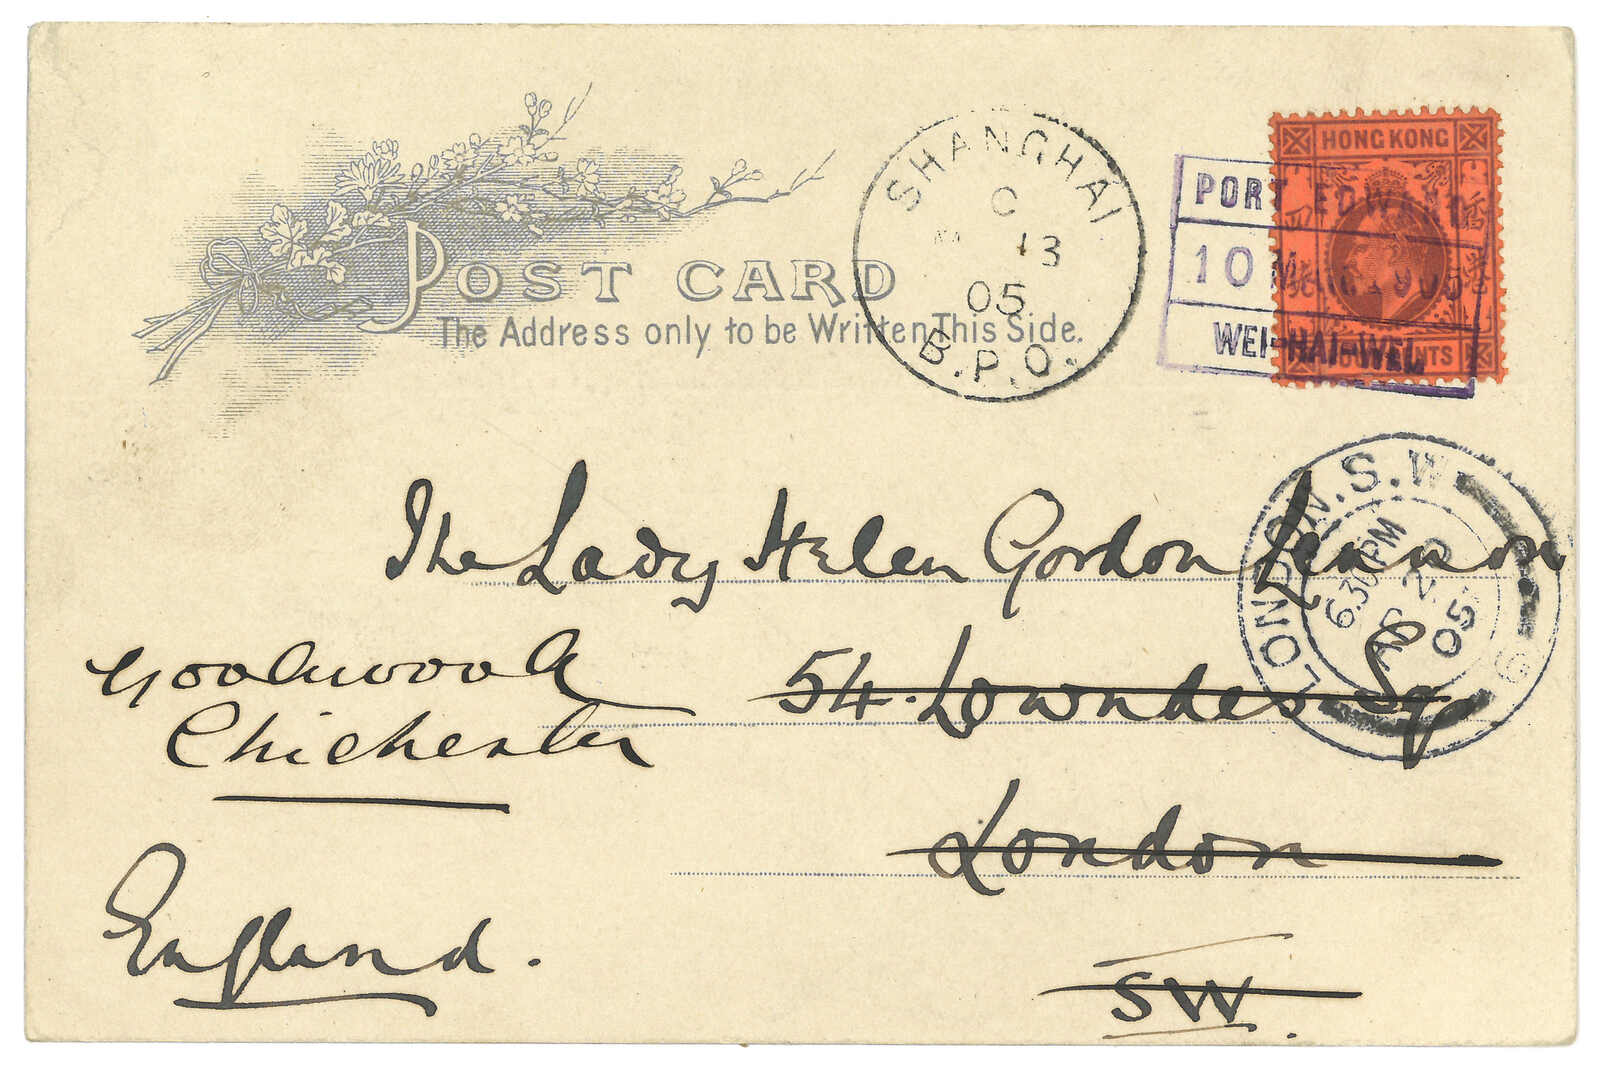 POST CARD
The Address only to be Written This Side.
SHANGHAI
C
13
05
B.P.O.
HONG KONG
PORT EDWARD
10 MAR 1905
WEI-HAI-WEI
LONDON.S.W
6.30 PM
05
The Lady Helen Gordon Lennox
54. Lowndes Sq
London
SW.
Goodwood
Chichester
England.